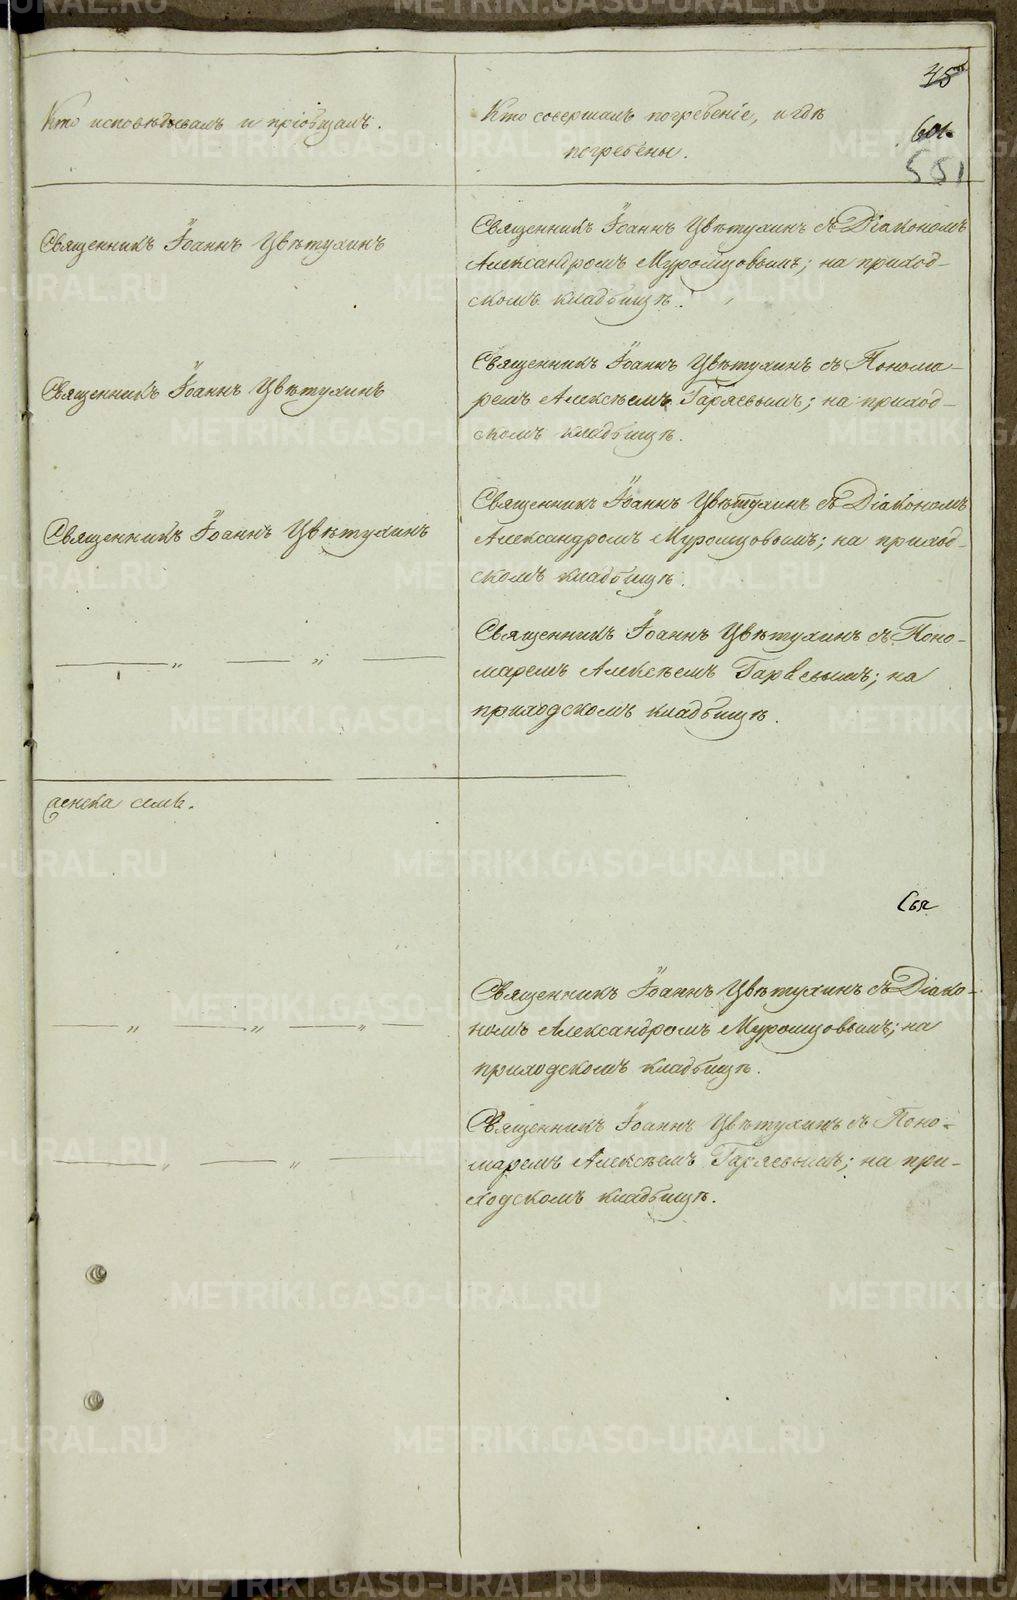 45
Кто исповѣдывалъ и пріобщалъ.
Кто совершалъ погребеніе, и гдѣ
погребены.
601
551
Священникъ Іоаннъ Цвѣтухинъ
Священникъ Іоаннъ Цвѣтухинъ съ Діакономъ
Александромъ Муромцовымъ; на приход-
скомъ кладбищѣ.
Священникъ Іоаннъ Цвѣтухинъ
Священникъ Іоаннъ Цвѣтухинъ съ Понома-
ремъ Алексѣемъ Гаряевымъ; на приход-
скомъ кладбищѣ.
Священникъ Іоаннъ Цвѣтухинъ
Священникъ Іоаннъ Цвѣтухинъ съ Діакономъ
Александромъ Муромцовымъ; на приход-
скомъ кладбищѣ.
— „ — „ —
Священникъ Іоаннъ Цвѣтухинъ съ Поно-
маремъ Алексѣемъ Гаряевымъ; на
приходскомъ кладбищѣ.
женска семь.
— „ — „ — „ —
Священникъ Іоаннъ Цвѣтухинъ съ Діако-
номъ Александромъ Муромцовымъ; на
приходскомъ кладбищѣ.
— „ — „ —
Священникъ Іоаннъ Цвѣтухинъ съ Поно-
маремъ Алексѣемъ Гаряевымъ; на при-
ходскомъ кладбищѣ.
METRIKI.GASO-URAL.RU